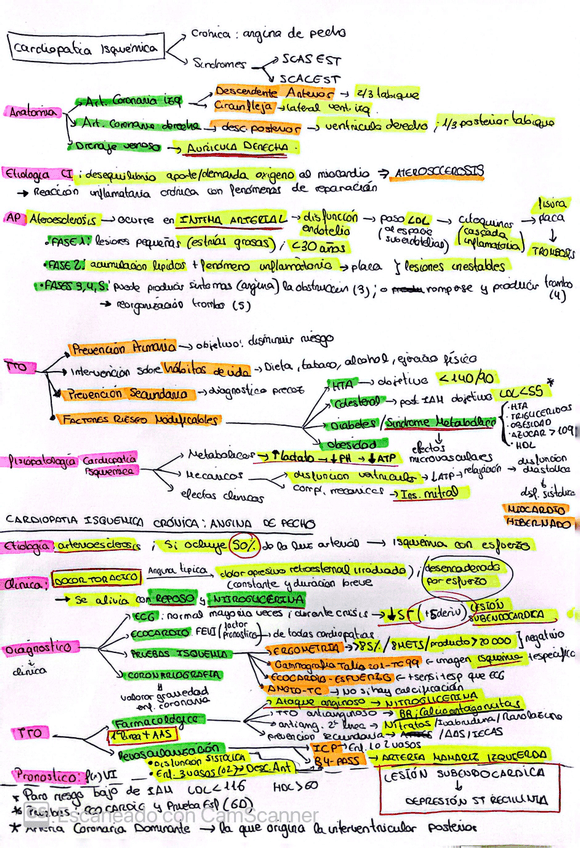 Cardiopatía Isquémica
→ Crónica: angina de pecho
→ Síndromes → SCASEST
→ SCACEST
Anatomía → Art. Coronaria izq → Descendente Anterior → 2/3 tabique
→ Circunfleja → lateral vent izq
→ Art. Coronaria derecha → desc. posterior → ventrículo derecho, 1/3 posterior tabique
→ Drenaje venoso → AURÍCULA DERECHA.
Etiología CI: desequilibrio aporte/demanda oxígeno al miocardio → ATEROSCLEROSIS
→ Reacción inflamatoria crónica con fenómenos de reparación
AP Ateroesclerosis → ocurre en INTIMA ARTERIAL → disfunción endotelio → paso LDL al espacio subendotelial → citoquinas (cascada inflamatoria) → fisura placa
↓
TROMBOSIS
• FASE 1: lesiones pequeñas (estrías grasas), <30 años
• FASE 2: acumulación lípidos + fenómeno inflamatorio → placa } lesiones inestables
• FASES 3, 4, 5: puede producir síntomas (angina) la obstrucción (3); o romperse y producir trombo (4)
→ reorganización trombo (5)
TTO → Prevención Primaria → objetivo: disminuir riesgo
→ Intervención sobre Hábitos de vida → Dieta, tabaco, alcohol, ejercicio físico
→ Prevención Secundaria → diagnóstico precoz
→ FACTORES RIESGO Modificables
→ HTA → objetivo <140/90
→ Colesterol → post IAM objetivo LDL<55 *
→ Diabetes / Síndrome Metabólico
· HTA
· TRIGLICERIDOS
· OBESIDAD
· AZUCAR >109
· HDL
↓ efectos microvasculares
→ Obesidad
Fisiopatología Cardiopatía Isquémica → Metabólicos → ↑ lactato → ↓ PH → ↓ ATP
→ Mecánicos → disfunción ventricular → ↓ATP → relajación → disfunción diastólica
↓
disf. sistólica
compl. mecánicas → Ins. mitral
→ efectos clínicos
MIOCARDIO HIBERNADO
CARDIOPATIA ISQUEMICA CRÓNICA: ANGINA DE PECHO
Etiología: arterioesclerosis; Si ocluye 50% de la luz arterial → isquemia con esfuerzo
Clínica: DOLOR TORACICO Angina típica → dolor opresivo retroesternal (irradiado), (constante y duración breve) desencadenado por esfuerzo
→ Se alivia con REPOSO y NITROGLICERINA
Diagnóstico
↓
clínica
→ ECG: normal mayoría veces; durante crisis → ↓ST LESIÓN SUBENDOCARDICA
→ ECOCARDIO FEVI (factor pronóstico) → de todas cardiopatías
→ PRUEBAS ISQUEMIA → ERGOMETRIA → >85% / 8METS / producto > 20000 } negativo
→ Gammagrafía Talio 201-TC99 ← imagen isquemia + específica
→ ECOCARDIO-ESFUERZO ← + sensi + esp que ECG
→ ANGIO-TC → No si hay calcificación
→ CORONARIOGRAFIA
↓
valorar gravedad enf. coronaria
TTO → Farmacológico → Ataque anginoso → NITROGLICERINA
1ª línea + AAS
→ TTO antianginoso → BB / Calcioantagonistas
→ antiang. 2ª línea → Nitratos / Ivabradina / Ranolazina
→ prevención secundaria → AAS / IECAS
→ Revascularización
• Disfunción sistólica
• Enf. 3 vasos (o 2) + Desc. Ant
→ ICP → Enf. 1 o 2 vasos
→ BY-PASS → ARTERIA MAMARIA IZQUIERDA
Pronóstico: f(x) VI
LESIÓN SUBENDOCARDICA
↓
DEPRESIÓN ST RECTILINIA
* Para riesgo bajo de IAM LDL<116 HDL>60
* Pruebas: ECO CARDIO y Prueba Esf (6D)
* Arteria Coronaria Dominante → la que origina la interventricular posterior
CS Escaneado con CamScanner